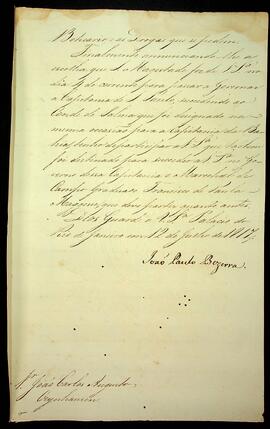 Boticario as Drogas que se pedem.
Finalmente communicando lhe a
escolha que S. Magestade fez de V. Sª no
dia 4 do corrente para passar a Governar
a Capitania de S. Paulo, succedendo ao
Conde de Palma que foi designado na
mesma occasião para a Capitania da Ba-
hia,
foi destinado para succeder a V. Sª no Go-
verno dessa Capitania o Marechal de
Campo Graduado Francisco de Paula
Magessi, que deve partir quanto antes.
Deos Guarde a V. Sª Palacio do
Rio de Janeiro em 12 de Julho de 1817.
João Paulo Bezerra.
Sr. João Carlos Augusto
Oeynhausen